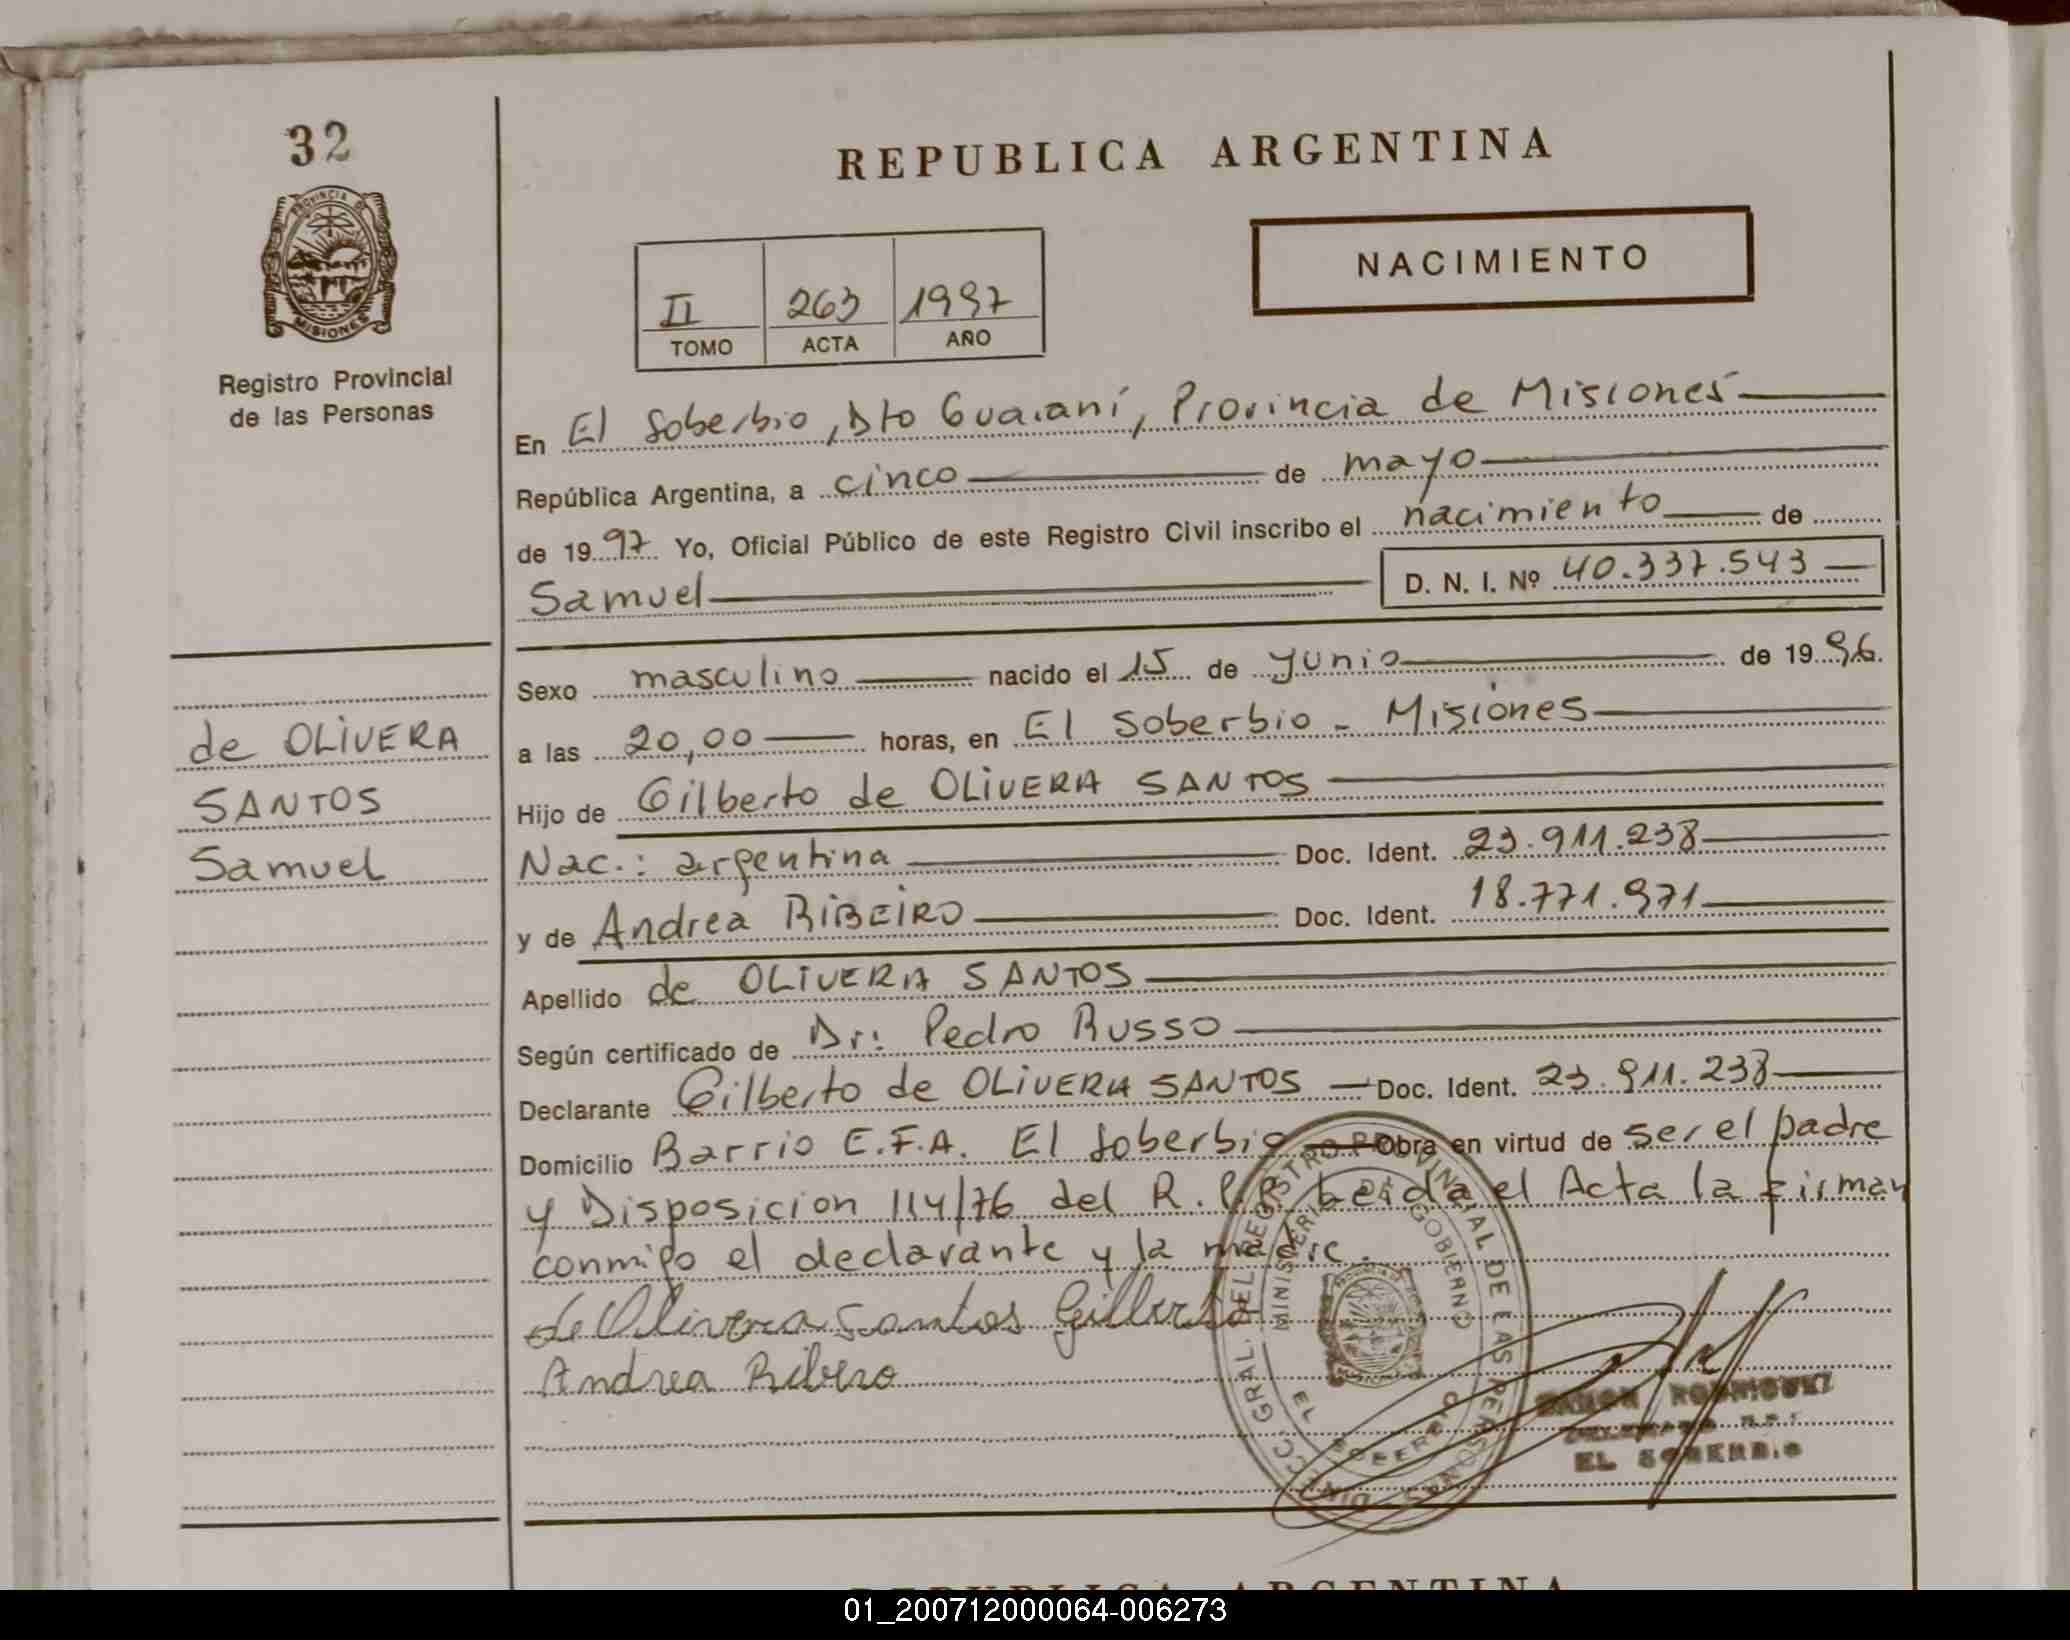 32
REPUBLICA ARGENTINA
PROVINCIA DE
MISIONES
Registro Provincial
de las Personas
NACIMIENTO
II 263 1997
TOMO ACTA AÑO
En El Soberbio, Dto Guaraní, Provincia de Misiones
República Argentina, a cinco de mayo
de 1997 Yo, Oficial Público de este Registro Civil inscribo el nacimiento de
Samuel D. N. I. Nº 40.337.543
Sexo masculino nacido el 15 de Junio de 1996.
a las 20,00 horas, en El Soberbio - Misiones
Hijo de Gilberto de OLIVERA SANTOS
Nac.: argentina Doc. Ident. 23.911.238
y de Andrea RIBEIRO Doc. Ident. 18.771.971
Apellido de OLIVERA SANTOS
Según certificado de Dr: Pedro Russo
Declarante Gilberto de OLIVERA SANTOS Doc. Ident. 23.911.238
Domicilio Barrio E.F.A. El Soberbio Obra en virtud de ser el padre
y Disposicion 114/76 del R.P.P. leida el Acta la firman
conmigo el declarante y la madre.
de Olivera Santos Gilberto
Andrea Ribero
de OLIVERA
SANTOS
Samuel
DIRECC. GRAL. DEL REGISTRO PROVINCIAL DE LAS PERSONAS
MINISTERIO DE GOBIERNO
EL SOBERBIO
RAMON RODRIGUEZ
DELEGADO R.P.P.
EL SOBERBIO
REPUBLICA ARGENTINA
01_200712000064-006273